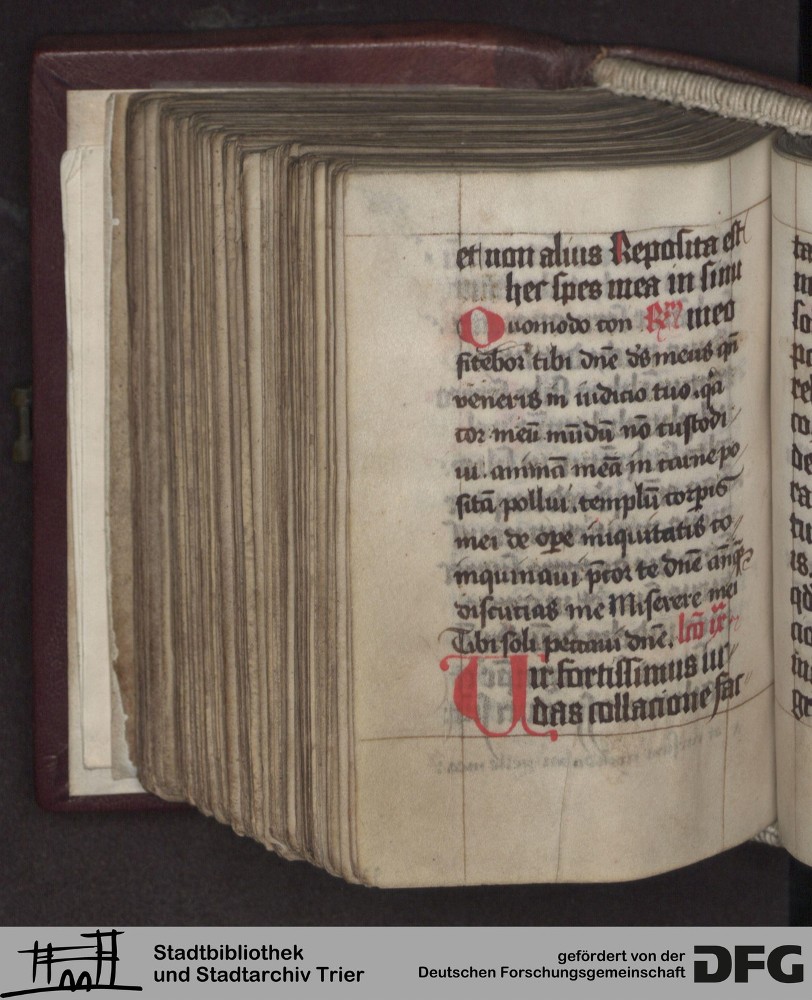 et non alius Reposita est
hec spes mea in sinu
Quomodo con R᷑m meo
fitebor tibi dn̄e d̄s meus qn̄
veneris in iudicio tuo. q̄a
cor meū mūdū nō custodi
ui. animā meā in carne po
sitā pollui. templū corpis
mei de ope iniquitatis co
inquinaui p̄cor te dn̄e anq̄
discutias me Miserere mei
Tibi soli peccaui dn̄e. lc̄o
Vir fortissimus iu
das collacione fac
Stadtbibliothek
und Stadtarchiv Trier
gefördert von der
Deutschen Forschungsgemeinschaft
DFG